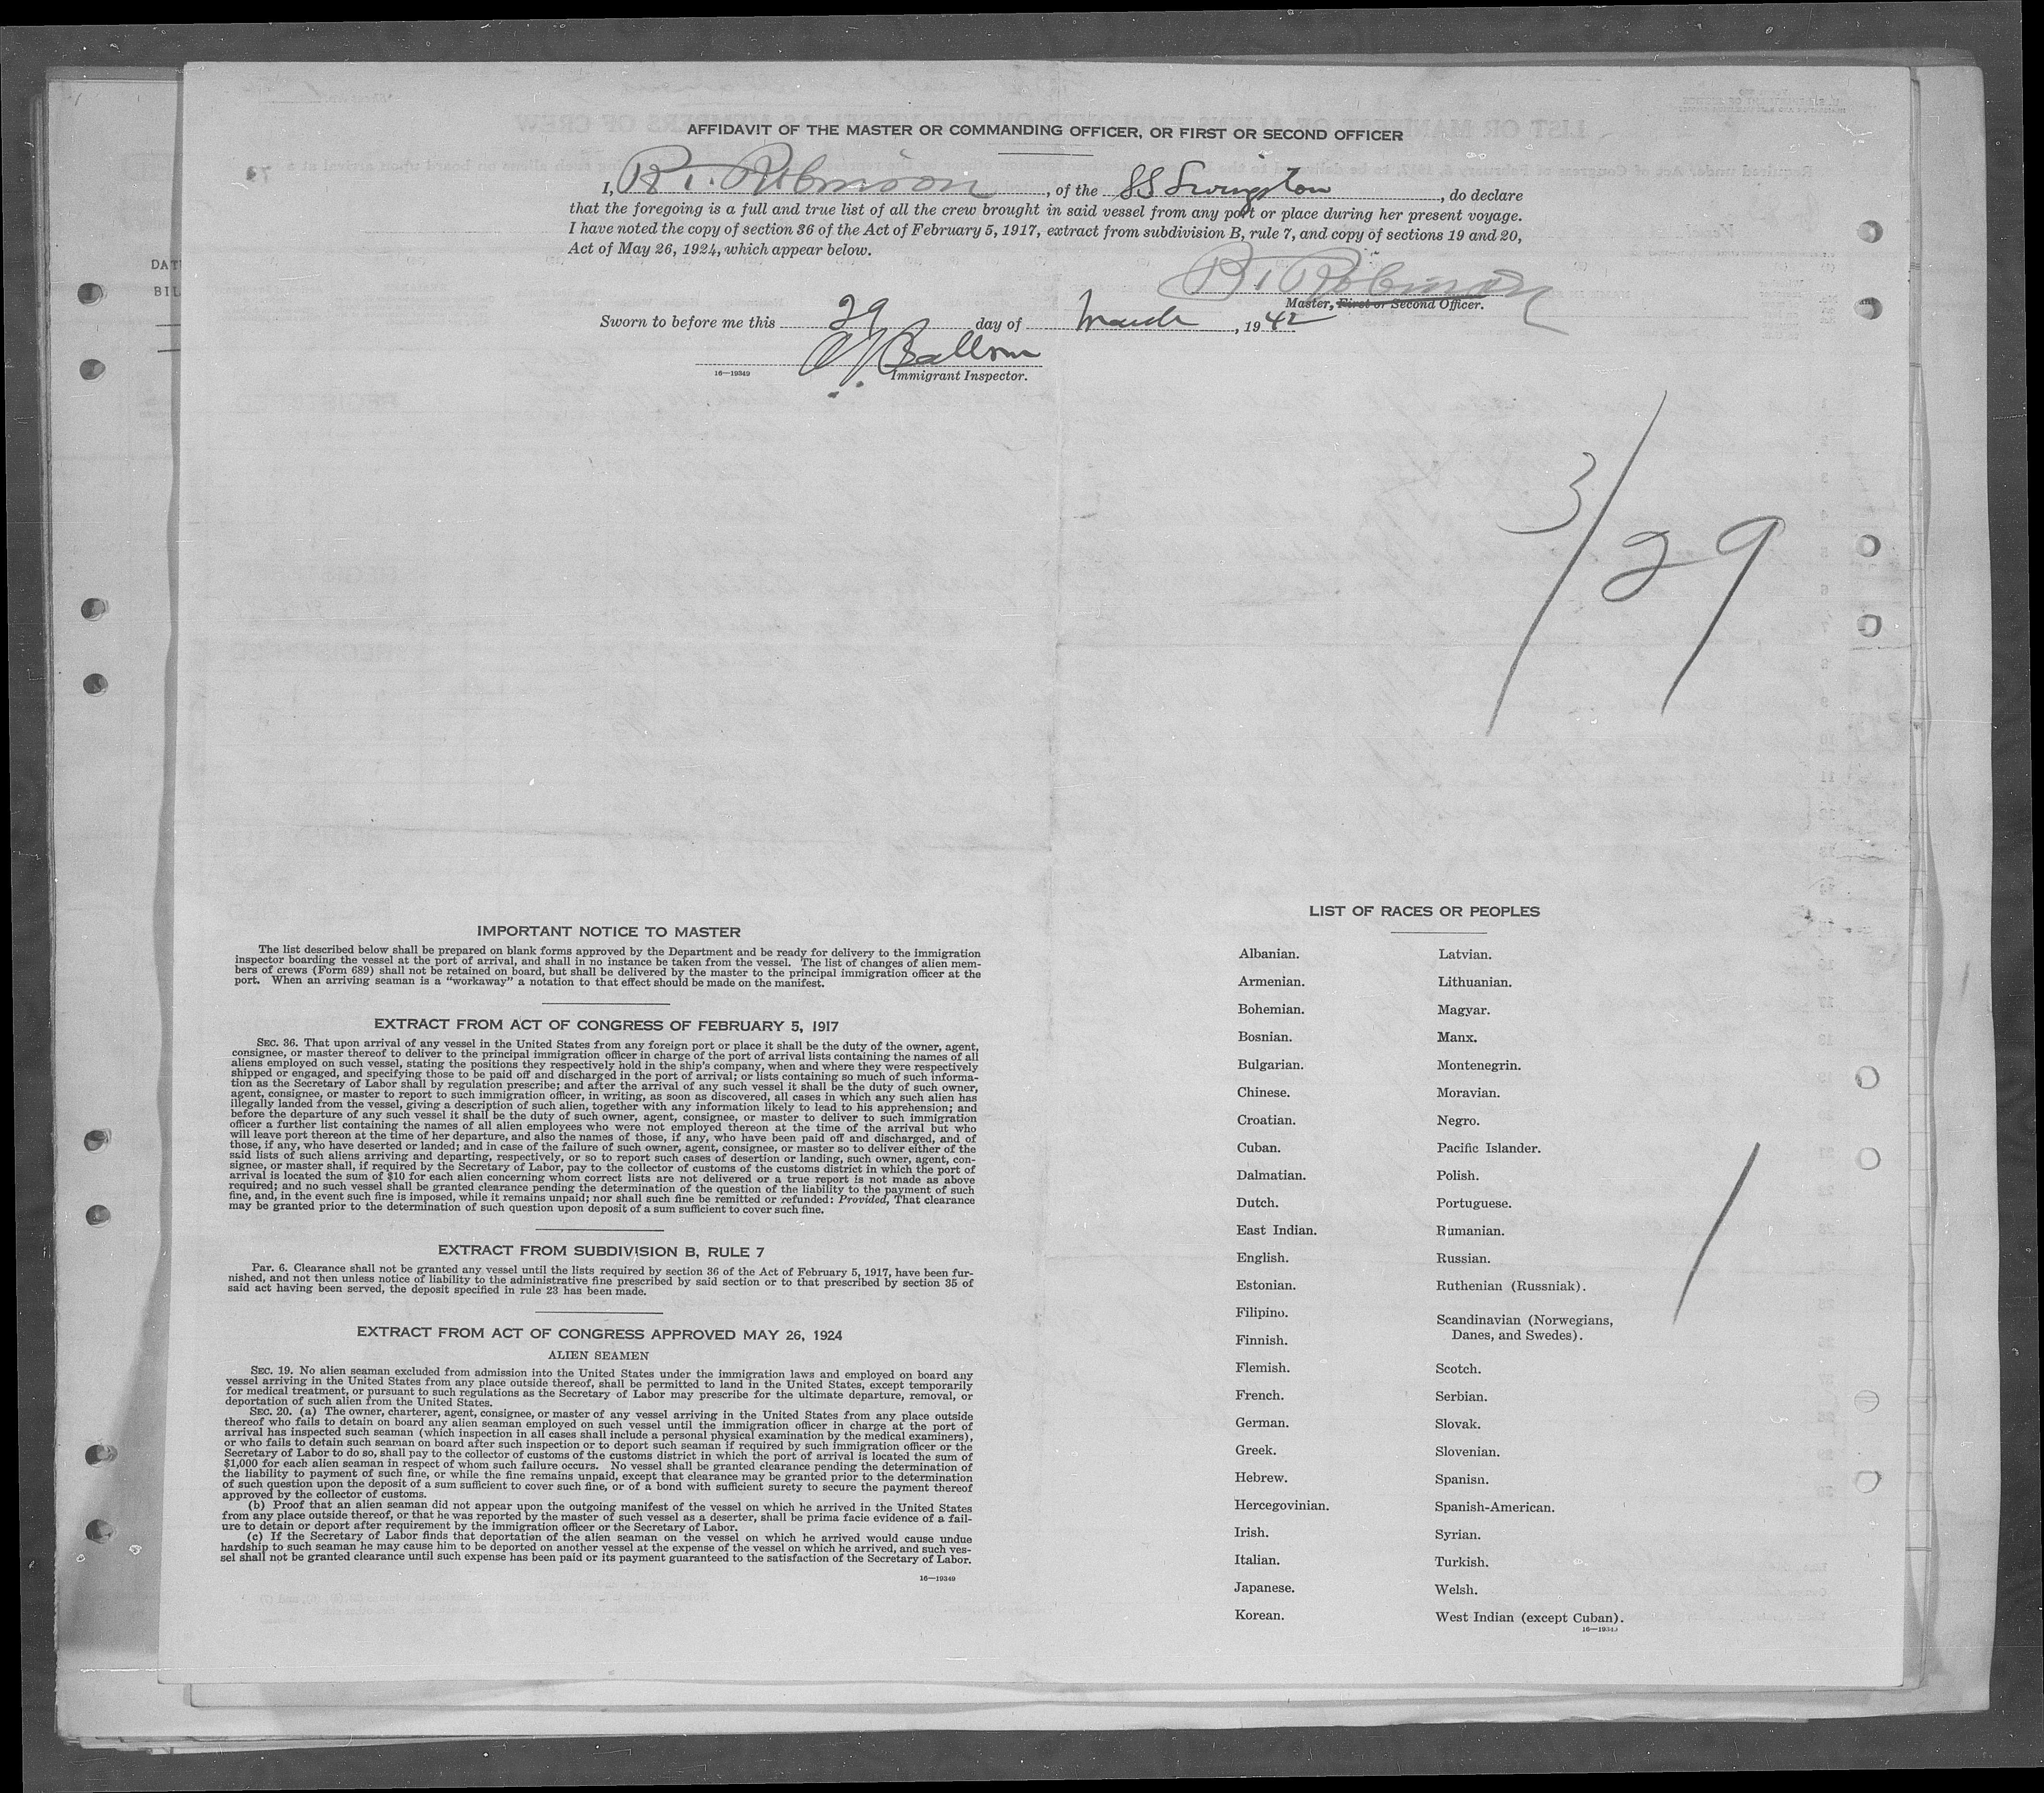 AFFIDAVIT OF THE MASTER OR COMMANDING OFFICER, OR FIRST OR SECOND OFFICER
I, R. T. Robinson, of the SS Livingston, do declare
that the foregoing is a full and true list of all the crew brought in said vessel from any port or place during her present voyage.
I have noted the copy of section 36 of the Act of February 5, 1917, extract from subdivision B, rule 7, and copy of sections 19 and 20,
Act of May 26, 1924, which appear below.
Robinson
Master, First or Second Officer.
Sworn to before me this 29 day of March, 1942
16—19349
Immigrant Inspector.
DAT
BIL
3/29
IMPORTANT NOTICE TO MASTER
The list described below shall be prepared on blank forms approved by the Department and be ready for delivery to the immigration
inspector boarding the vessel at the port of arrival, and shall in no instance be taken from the vessel. The list of changes of alien mem-
bers of crews (Form 689) shall not be retained on board, but shall be delivered by the master to the principal immigration officer at the
port. When an arriving seaman is a "workaway" a notation to that effect should be made on the manifest.
EXTRACT FROM ACT OF CONGRESS OF FEBRUARY 5, 1917
SEC. 36. That upon arrival of any vessel in the United States from any foreign port or place it shall be the duty of the owner, agent,
consignee, or master thereof to deliver to the principal immigration officer in charge of the port of arrival lists containing the names of all
aliens employed on such vessel, stating the positions they respectively hold in the ship's company, when and where they were respectively
shipped or engaged, and specifying those to be paid off and discharged in the port of arrival; or lists containing so much of such informa-
tion as the Secretary of Labor shall by regulation prescribe; and after the arrival of any such vessel it shall be the duty of such owner,
agent, consignee, or master to report to such immigration officer, in writing, as soon as discovered, all cases in which any such alien has
illegally landed from the vessel, giving a description of such alien, together with any information likely to lead to his apprehension; and
before the departure of any such vessel it shall be the duty of such owner, agent, consignee, or master to deliver to such immigration
officer a further list containing the names of all alien employees who were not employed thereon at the time of the arrival but who
will leave port thereon at the time of her departure, and also the names of those, if any, who have been paid off and discharged, and of
those, if any, who have deserted or landed; and in case of the failure of such owner, agent, consignee, or master so to deliver either of the
said lists of such aliens arriving and departing, respectively, or so to report such cases of desertion or landing, such owner, agent, con-
signee, or master shall, if required by the Secretary of Labor, pay to the collector of customs of the customs district in which the port of
arrival is located the sum of $10 for each alien concerning whom correct lists are not delivered or a true report is not made as above
required; and no such vessel shall be granted clearance pending the determination of the question of the liability to the payment of such
fine, and, in the event such fine is imposed, while it remains unpaid; nor shall such fine be remitted or refunded: Provided, That clearance
may be granted prior to the determination of such question upon deposit of a sum sufficient to cover such fine.
EXTRACT FROM SUBDIVISION B, RULE 7
Par. 6. Clearance shall not be granted any vessel until the lists required by section 36 of the Act of February 5, 1917, have been fur-
nished, and not then unless notice of liability to the administrative fine prescribed by said section or to that prescribed by section 35 of
said act having been served, the deposit specified in rule 23 has been made.
EXTRACT FROM ACT OF CONGRESS APPROVED MAY 26, 1924
ALIEN SEAMEN
SEC. 19. No alien seaman excluded from admission into the United States under the immigration laws and employed on board any
vessel arriving in the United States from any place outside thereof, shall be permitted to land in the United States, except temporarily
for medical treatment, or pursuant to such regulations as the Secretary of Labor may prescribe for the ultimate departure, removal, or
deportation of such alien from the United States.
SEC. 20. (a) The owner, charterer, agent, consignee, or master of any vessel arriving in the United States from any place outside
thereof who fails to detain on board any alien seaman employed on such vessel until the immigration officer in charge at the port of
arrival has inspected such seaman (which inspection in all cases shall include a personal physical examination by the medical examiners),
or who fails to detain such seaman on board after such inspection or to deport such seaman if required by such immigration officer or the
Secretary of Labor to do so, shall pay to the collector of customs of the customs district in which the port of arrival is located the sum of
$1,000 for each alien seaman in respect of whom such failure occurs. No vessel shall be granted clearance pending the determination of
the liability to payment of such fine, or while the fine remains unpaid, except that clearance may be granted prior to the determination
of such question upon the deposit of a sum sufficient to cover such fine, or of a bond with sufficient surety to secure the payment thereof
approved by the collector of customs.
(b) Proof that an alien seaman did not appear upon the outgoing manifest of the vessel on which he arrived in the United States
from any place outside thereof, or that he was reported by the master of such vessel as a deserter, shall be prima facie evidence of a fail-
ure to detain or deport after requirement by the immigration officer or the Secretary of Labor.
(c) If the Secretary of Labor finds that deportation of the alien seaman on the vessel on which he arrived would cause undue
hardship to such seaman he may cause him to be deported on another vessel at the expense of the vessel on which he arrived, and such ves-
sel shall not be granted clearance until such expense has been paid or its payment guaranteed to the satisfaction of the Secretary of Labor.
16—19349
LIST OF RACES OR PEOPLES
Albanian.
Armenian.
Bohemian.
Bosnian.
Bulgarian.
Chinese.
Croatian.
Cuban.
Dalmatian.
Dutch.
East Indian.
English.
Estonian.
Filipino.
Finnish.
Flemish.
French.
German.
Greek.
Hebrew.
Hercegovinian.
Irish.
Italian.
Japanese.
Korean.
Latvian.
Lithuanian.
Magyar.
Manx.
Montenegrin.
Moravian.
Negro.
Pacific Islander.
Polish.
Portuguese.
Rumanian.
Russian.
Ruthenian (Russniak).
Scandinavian (Norwegians,
Danes, and Swedes).
Scotch.
Serbian.
Slovak.
Slovenian.
Spanish.
Spanish-American.
Syrian.
Turkish.
Welsh.
West Indian (except Cuban).
16—19349